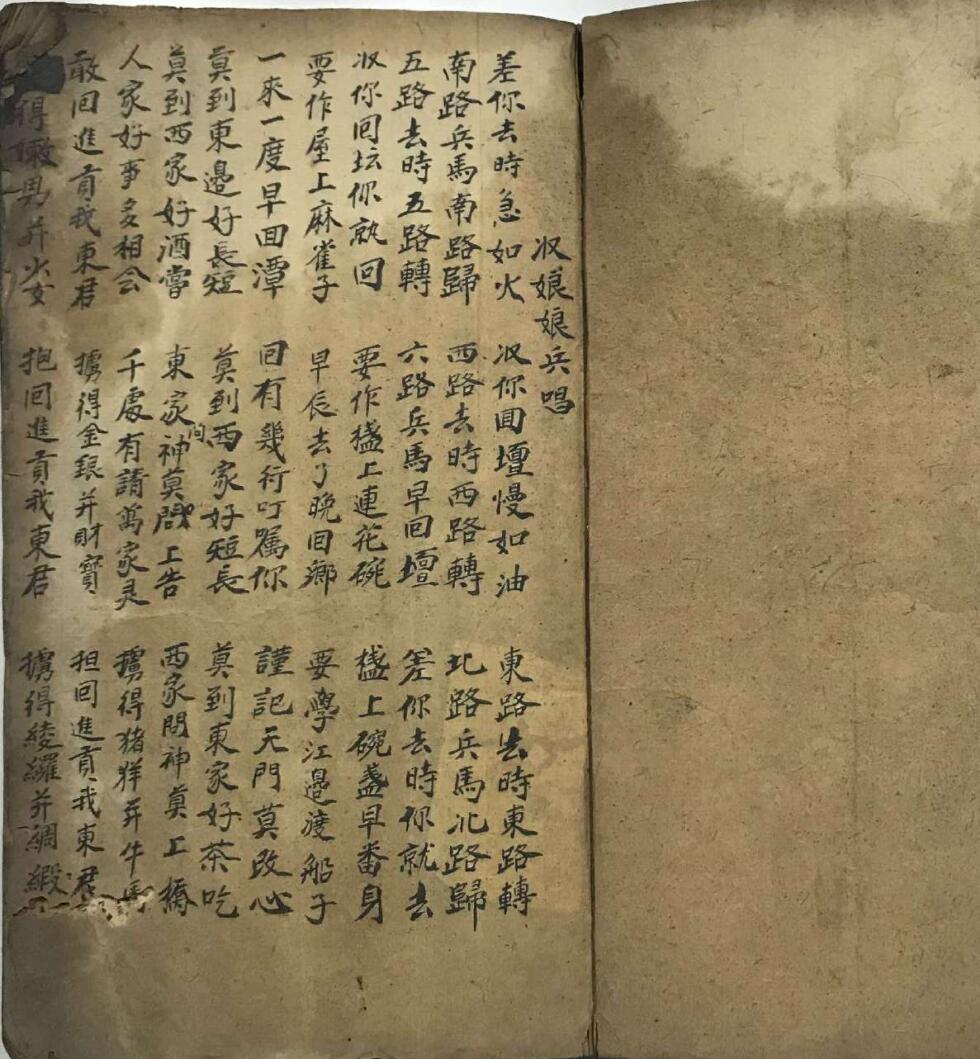 収娘娘兵唱
差你去時急如火 収你囬壇慢如油 東路去時東路轉
南路兵馬南路歸 西路去時西路轉 北路兵馬北路歸
五路去時五路轉 六路兵馬早回壇 差你去時你就去
収你回坛你就回 要作檯上連花碗 檯上碗盞早番身
要作屋上麻雀子 早辰去了晚回鄉 要學江邊渡船子
一來一度早回潭 回有幾行叮囑你 謹記天門莫改心
莫到東邊好長短 莫到西家好短長 莫到東家好茶吃
莫到西家好酒嘗 東家问神莫上告 西家問神莫上
人家好事多相会 千處有請萬家灵 擄得猪羊并牛馬
敢回進貢我東君 擄得金銀并財寶 担回進貢我東君
得男并小女 抱回進貢我東君 擄得綾羅并綢緞